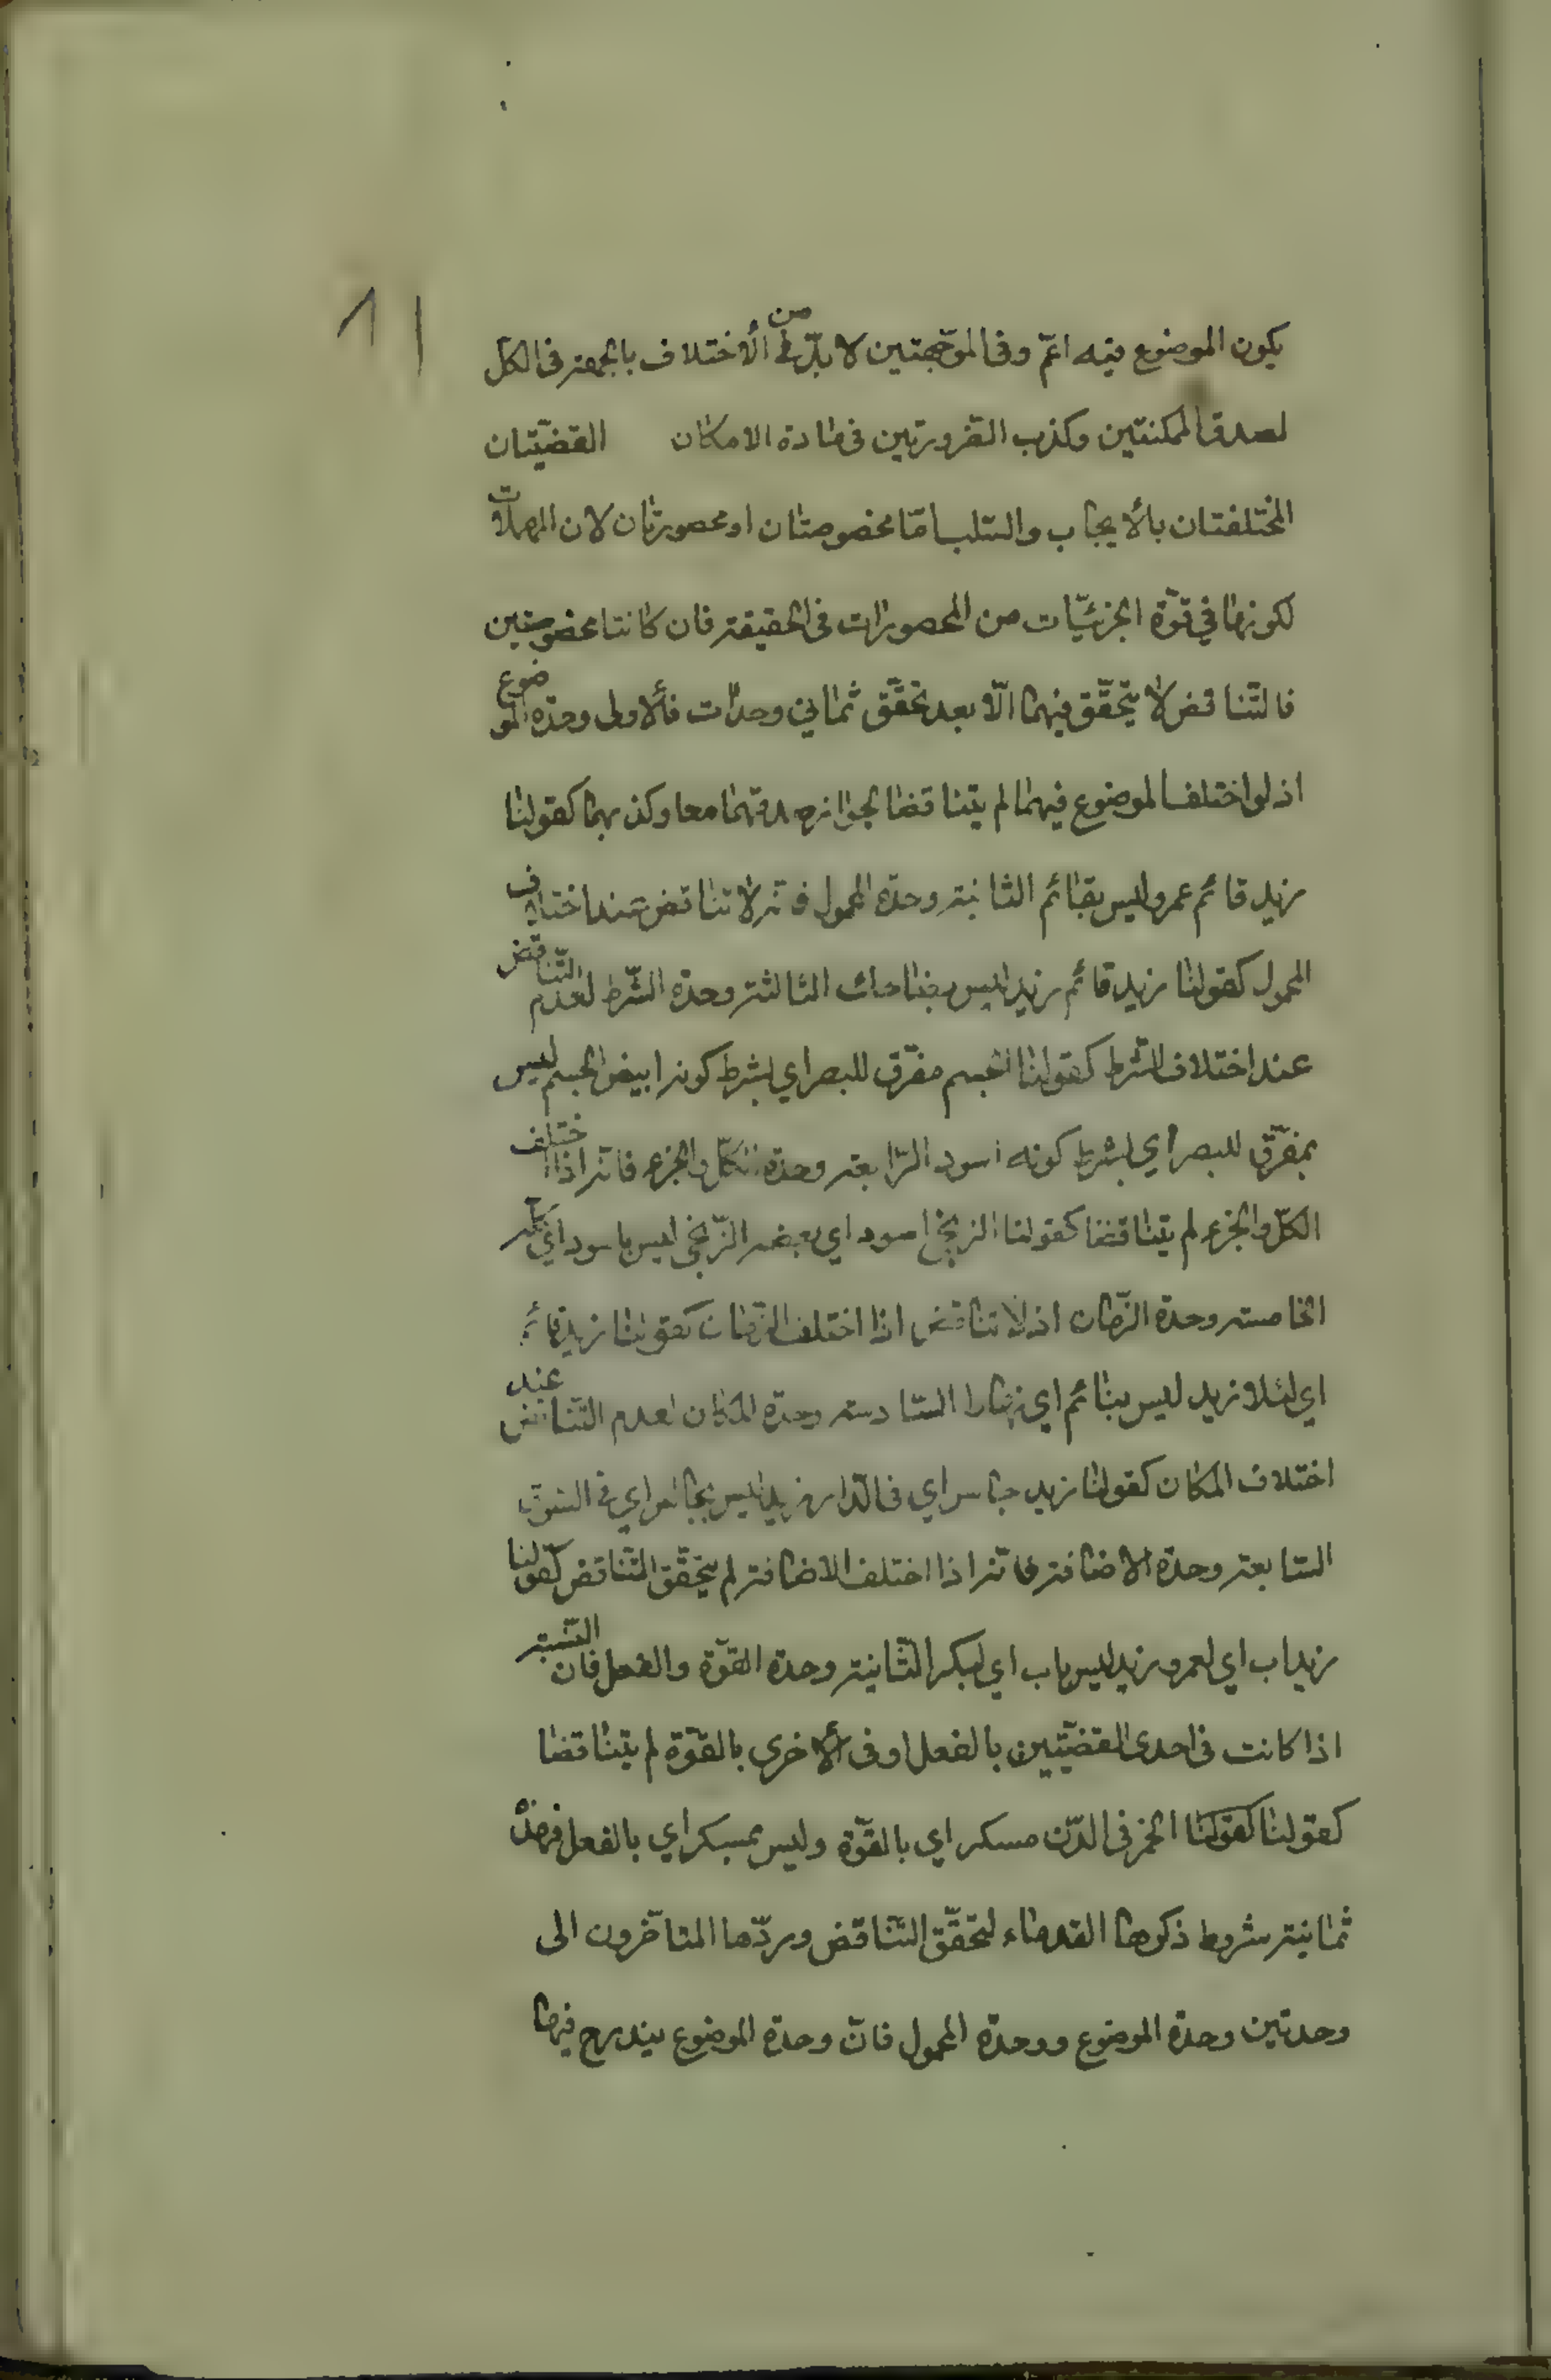 ١١
يكون الموضوع فيه اعمّ وفى الموجّهتين لا بدّ من الأختلاف بالجهة فى الكلّ
لصدق الممكنتين وكذب الضّرورتين فى مادة الامكان القضيّتان
المختلفتان بالأيجاب والسّلب امّا مخصوصتان او محصورتان لان المهملات
لكونها في قوّة الجزئيّات من المحصورات فى الحقيقة فان كانتا مخصوصتين
فالتّناقض لا يتحقّق فيهما الّا بعد تحقّق ثماني وحدات فألاولى وحدة الموضوع
اذ لو اختلف الموضوع فيهما لم يتناقضا لجواز صدقهما معا وكذبهما كقولنا
زيد قائم عمرو ليس بقائم الثانية وحدة المحمول فانّه لا تناقض عند اختلاف
المحمول كقولنا زيد قائم زيد ليس بضاحك الثالثة وحدة الشّرط لعدم التّناقض
عند اختلاف الشّرط كقولنا الجسم مفرّق للبصر اي بشرط كونه ابيض الجسم ليس
بمفرّق للبصر اي بشرط كونه اسود الرّابعة وحدة الكلّ والجزء فانّه اذا اختلف
الكلّ والجزء لم يتناقضا كقولنا الزنجي اسود اي بعضه الزّنجى ليس باسود اي كلّه
الخامسة وحدة الزّمان اذ لا تناقض اذا اختلف الزّمان كقولنا زيد نائم
اي ليلا زيد ليس بنائم اي نهارا السّادسة وحدة المكان لعدم التّناقض عند
اختلاف المكان كقولنا زيد جالس اي فى الدّار زيد ليس بجالس اي فى السّوق
السّابعة وحدة الاضافة فانّه اذا اختلف الاضافة لم يتحقّق التّناقض كقولنا
زيد اب اي لعمرو زيد ليس باب اي لبكر الثّامنة وحدة القوّة والفعل فان النّسبة
اذا كانت فى احدى القضيّتين بالفعل او فى ألاخرى بالقوّة لم يتناقضا
كقولنا كقولنا الخمر فى الدّن مسكر اي بالقوّة وليس بمسكر اي بالفعل فهذه
ثمانية شروط ذكرها القدماء لتحقّق التّناقض وردّها المتاخّرون الى
وحدتين وحدة الموضوع ووحدة المحمول فانّ وحدة الموضوع يندرج فيها